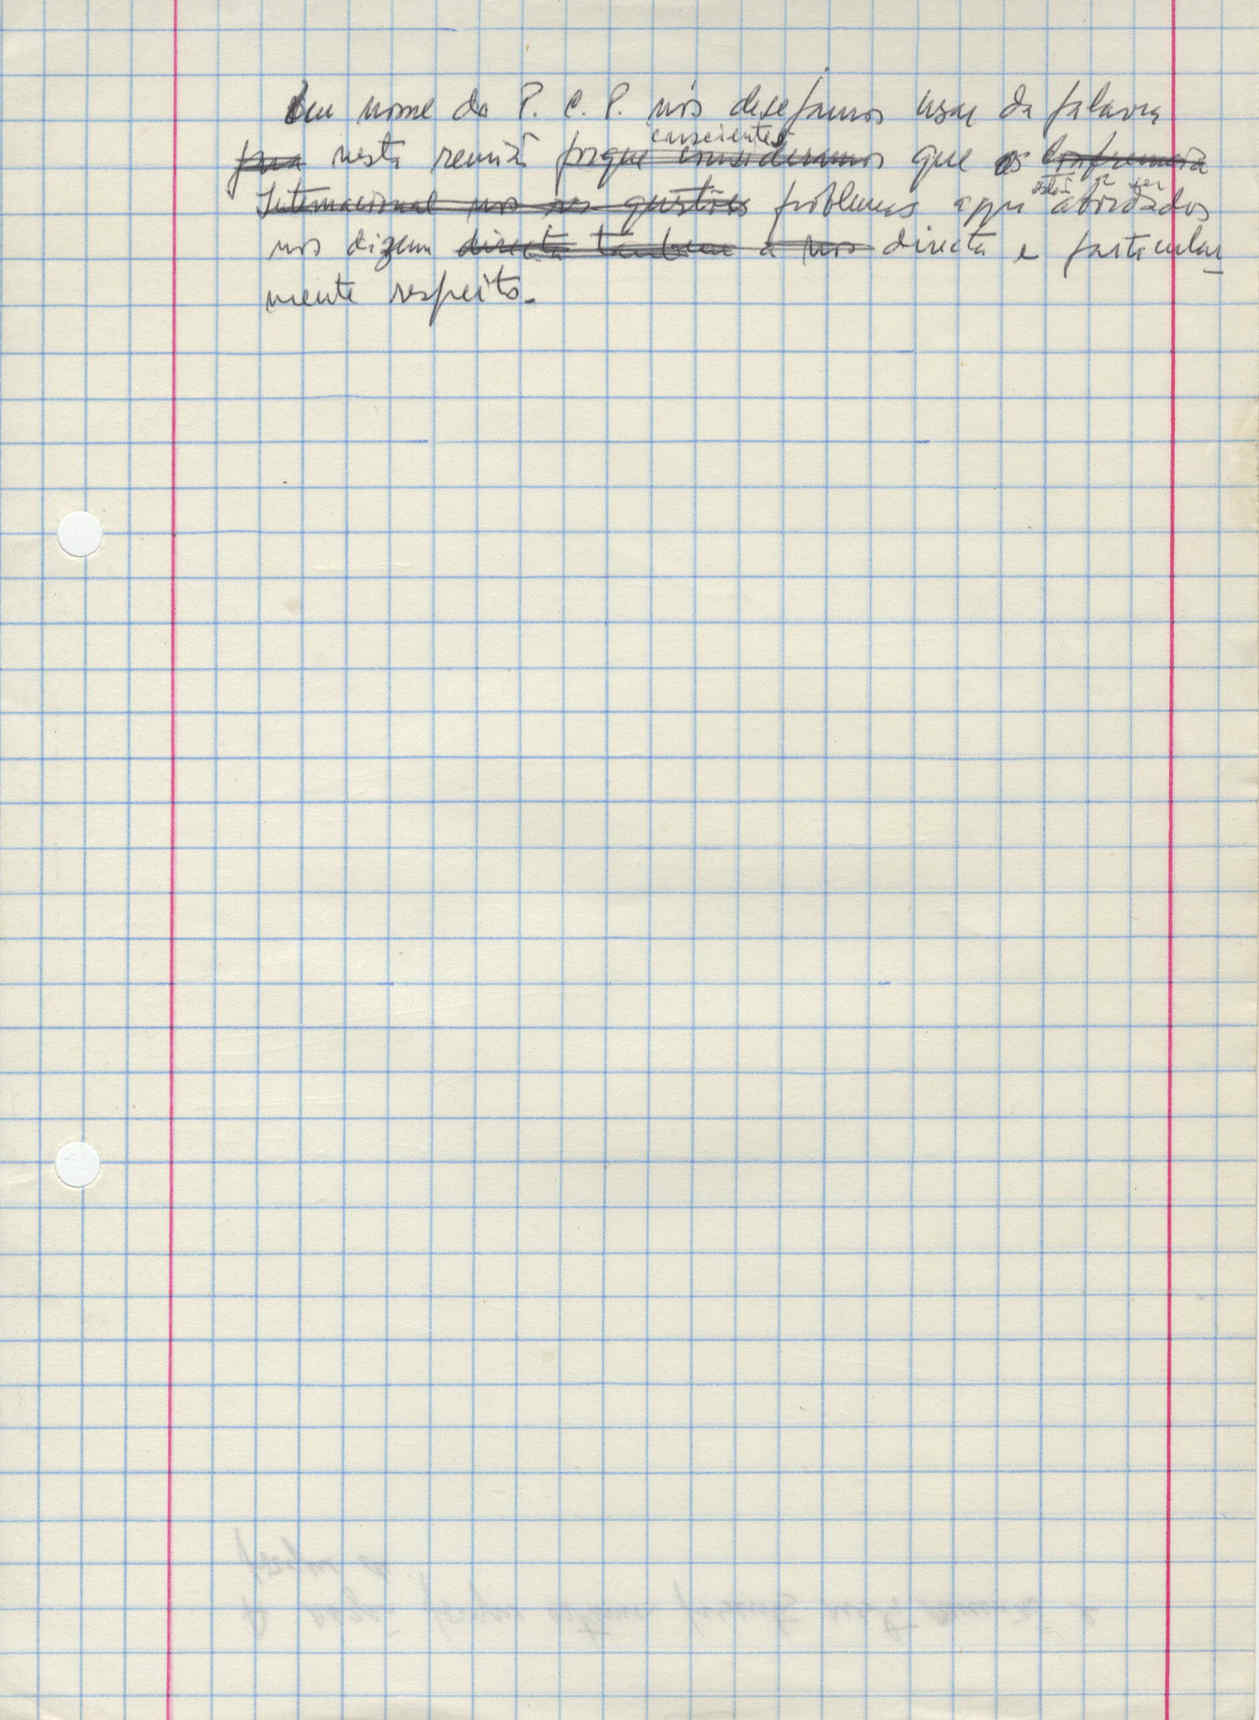 Em nome do P. C. P. nós desejamos usar da palavra
para nesta reunião porque conscientes consideramos que os Conferencia
Internacional nos nos questões problemas aqui estão a ser abordados
nos dizem directa tambem a nos directa e particular_
mente respeito.